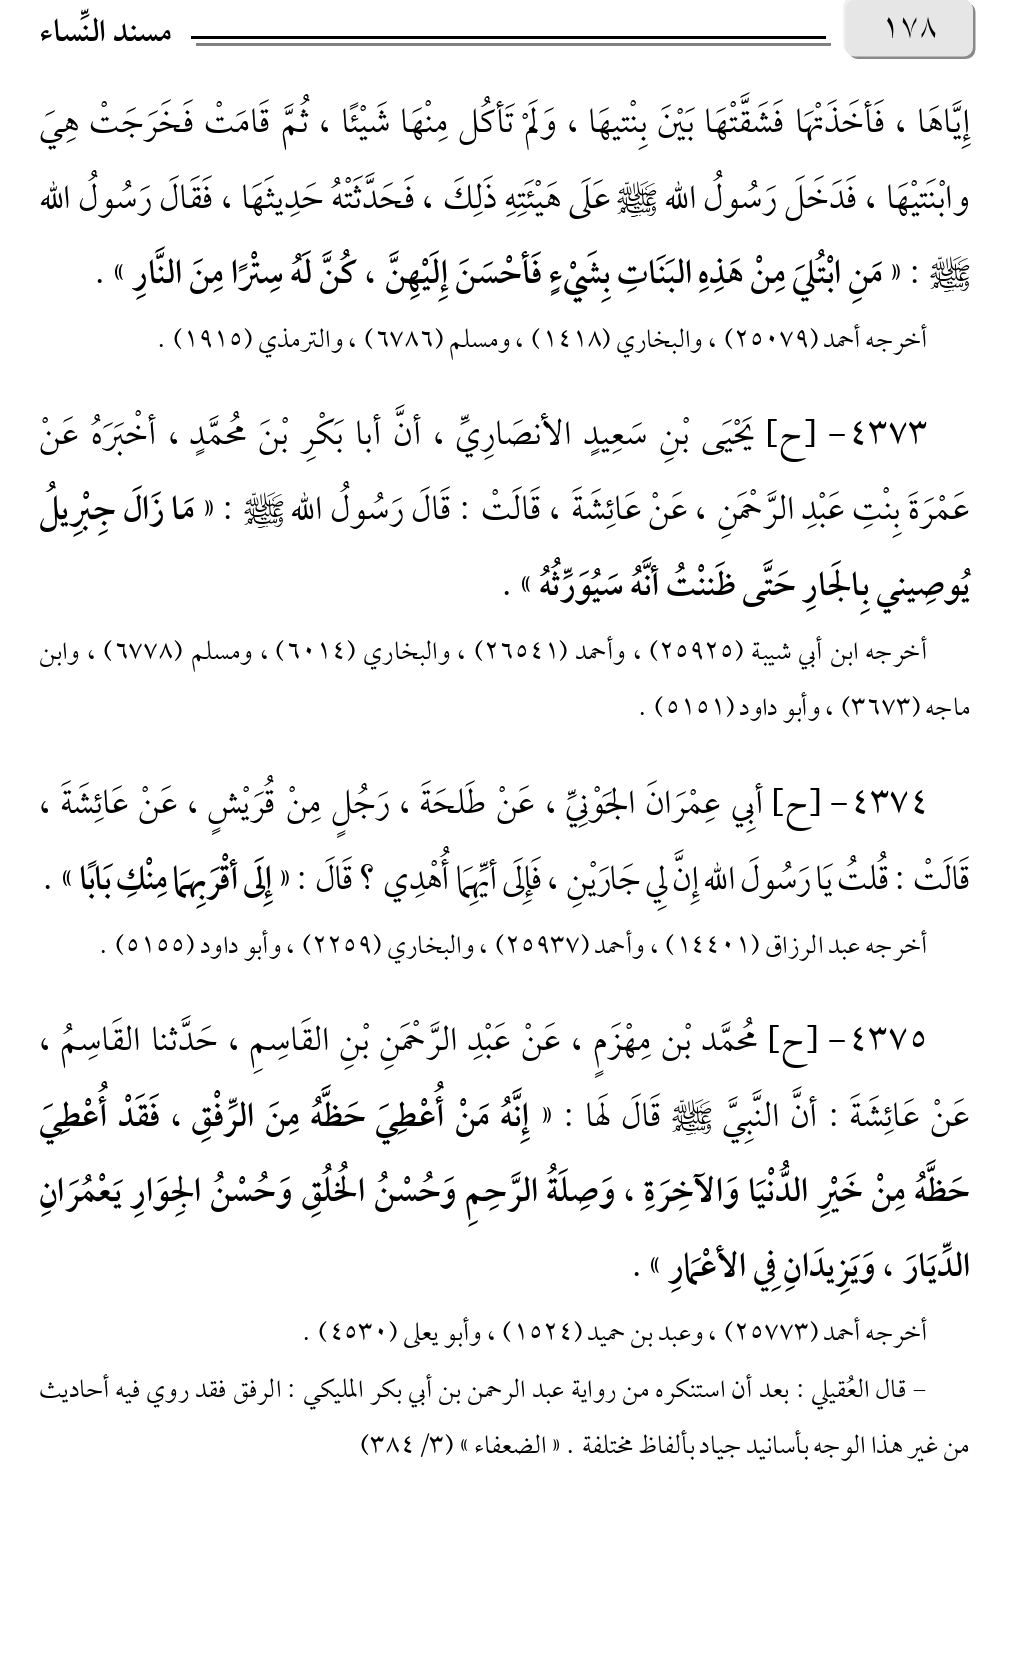 ١٧٨ مسند النِّساء
إِيَّاهَا ، فَأخَذَتْهَا فَشَقَّتْهَا بَيْنَ بِنْتيهَا ، وَلَمْ تَأكُل مِنْهَا شَيْئًا ، ثُمَّ قَامَتْ فَخَرَجَتْ هِيَ
وابْنَتيْهَا ، فَدَخَلَ رَسُولُ الله ﷺ عَلَى هَيْئَتِهِ ذَلِكَ ، فَحَدَّثَتْهُ حَدِيثَهَا ، فَقَالَ رَسُولُ الله
ﷺ : « مَنِ ابْتُلِيَ مِنْ هَذِهِ البَنَاتِ بِشَيْءٍ فَأحْسَنَ إِلَيْهِنَّ ، كُنَّ لَهُ سِتْرًا مِنَ النَّارِ » .
أخرجه أحمد (٢٥٠٧٩) ، والبخاري (١٤١٨) ، ومسلم (٦٧٨٦) ، والترمذي (١٩١٥) .
٤٣٧٣- [ح] يَحْيَى بْنِ سَعِيدٍ الأنصَارِيِّ ، أنَّ أبا بَكْرِ بْنَ مُحمَّدٍ ، أخْبَرَهُ عَنْ
عَمْرَةَ بِنْتِ عَبْدِ الرَّحْمَنِ ، عَنْ عَائِشَةَ ، قَالَتْ : قَالَ رَسُولُ الله ﷺ : « مَا زَالَ جِبْرِيلُ
يُوصِيني بِالجَارِ حَتَّى ظَننْتُ أنَّهُ سَيُوَرِّثُهُ » .
أخرجه ابن أبي شيبة (٢٥٩٢٥) ، وأحمد (٢٦٥٤١) ، والبخاري (٦٠١٤) ، ومسلم (٦٧٧٨) ، وابن
ماجه (٣٦٧٣) ، وأبو داود (٥١٥١) .
٤٣٧٤- [ح] أبِي عِمْرَانَ الجَوْنِيِّ ، عَنْ طَلحَةَ ، رَجُلٍ مِنْ قُرَيْشٍ ، عَنْ عَائِشَةَ ،
قَالَتْ : قُلتُ يَا رَسُولَ الله إِنَّ لِي جَارَيْنِ ، فَإِلَى أيِّهِمَا أُهْدِي ؟ قَالَ : « إِلَى أقْرَبِهِمَا مِنْكِ بَابًا » .
أخرجه عبد الرزاق (١٤٤٠١) ، وأحمد (٢٥٩٣٧) ، والبخاري (٢٢٥٩) ، وأبو داود (٥١٥٥) .
٤٣٧٥- [ح] مُحمَّد بْن مِهْزَمٍ ، عَنْ عَبْدِ الرَّحْمَنِ بْنِ القَاسِمِ ، حَدَّثنا القَاسِمُ ،
عَنْ عَائِشَةَ : أنَّ النَّبِيَّ ﷺ قَالَ لَهَا : « إِنَّهُ مَنْ أُعْطِيَ حَظَّهُ مِنَ الرِّفْقِ ، فَقَدْ أُعْطِيَ
حَظَّهُ مِنْ خَيْرِ الدُّنْيَا وَالآخِرَةِ ، وَصِلَةُ الرَّحِمِ وَحُسْنُ الخُلُقِ وَحُسْنُ الجِوَارِ يَعْمُرَانِ
الدِّيَارَ ، وَيَزِيدَانِ فِي الأعْمَارِ » .
أخرجه أحمد (٢٥٧٧٣) ، وعبد بن حميد (١٥٢٤) ، وأبو يعلى (٤٥٣٠) .
- قال العُقيلي : بعد أن استنكره من رواية عبد الرحمن بن أبي بكر المليكي : الرفق فقد روي فيه أحاديث
من غير هذا الوجه بأسانيد جياد بألفاظ مختلفة . « الضعفاء » (٣/ ٣٨٤)